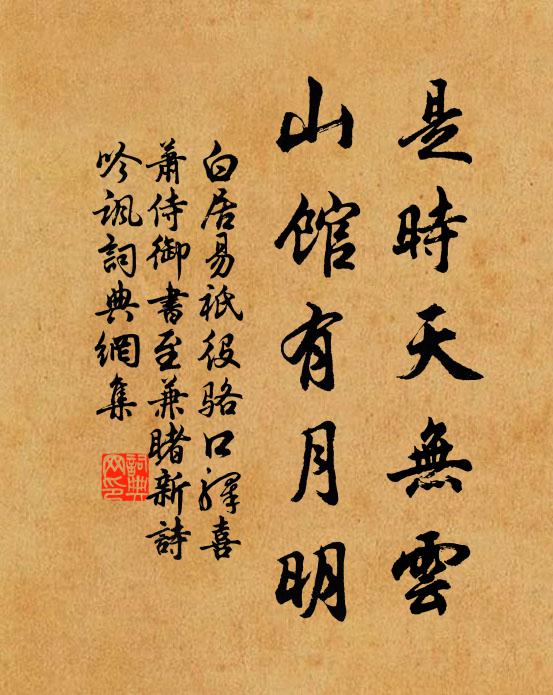 是時天無雲
山館有月明
白居易祇役駱口驛喜
蕭侍御書至兼睹新詩
吟諷詞典網集
詞典網印